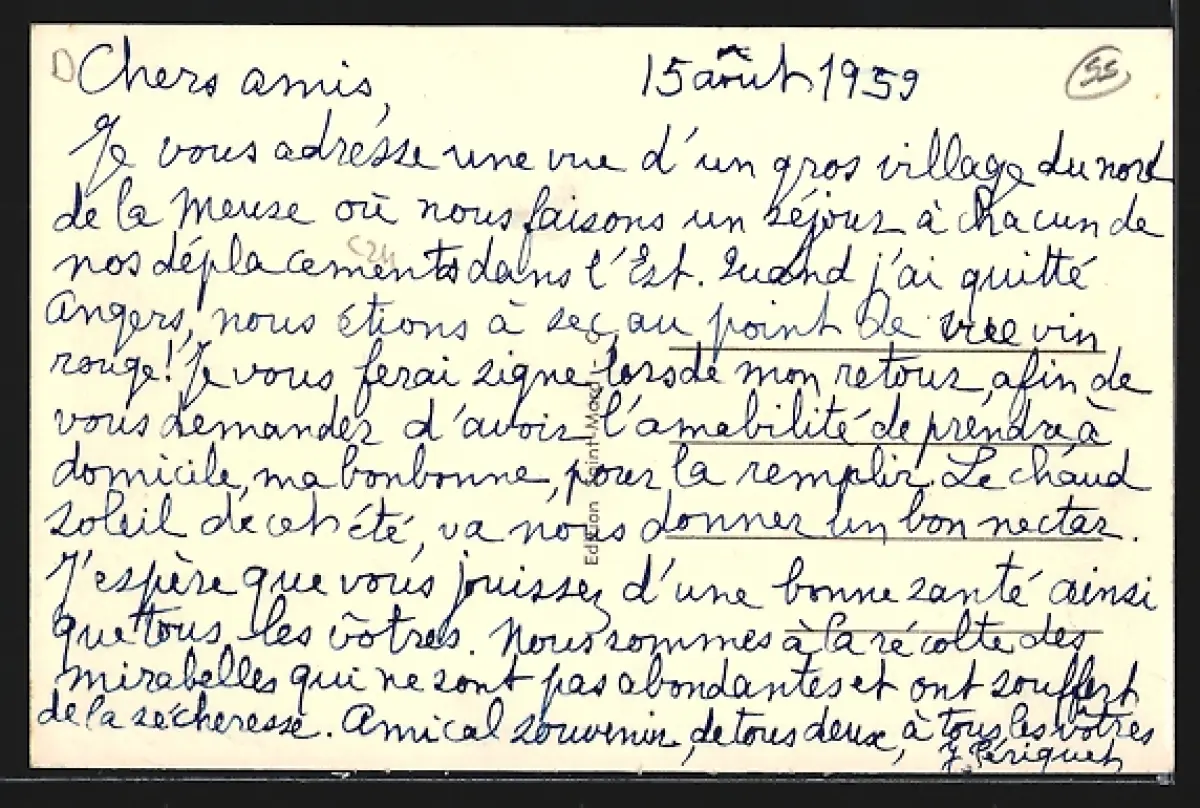 D Chers amis, 15 août 1959 55
Je vous adresse une vue d'un gros village du nord
de la Meuse où nous faisons un séjour à chacun de
nos déplacements dans l'Est. Quand j'ai quitté
Angers, nous étions à sec, au point de vue vin
rouge! Je vous ferai signe, lors de mon retour, afin de
vous demander d'avoir l'amabilité de prendre à
domicile, ma bonbonne, pour la remplir. Le chaud
soleil de cet été, va nous donner un bon nectar.
J'espère que vous jouissez d'une bonne santé ainsi
que tous les vôtres. Nous sommes à la récolte des
mirabelles qui ne sont pas abondantes et ont souffert
de la sécheresse. Amical souvenir, de tous deux, à tous les vôtres
J. Périquet
Edition Saint-Mard